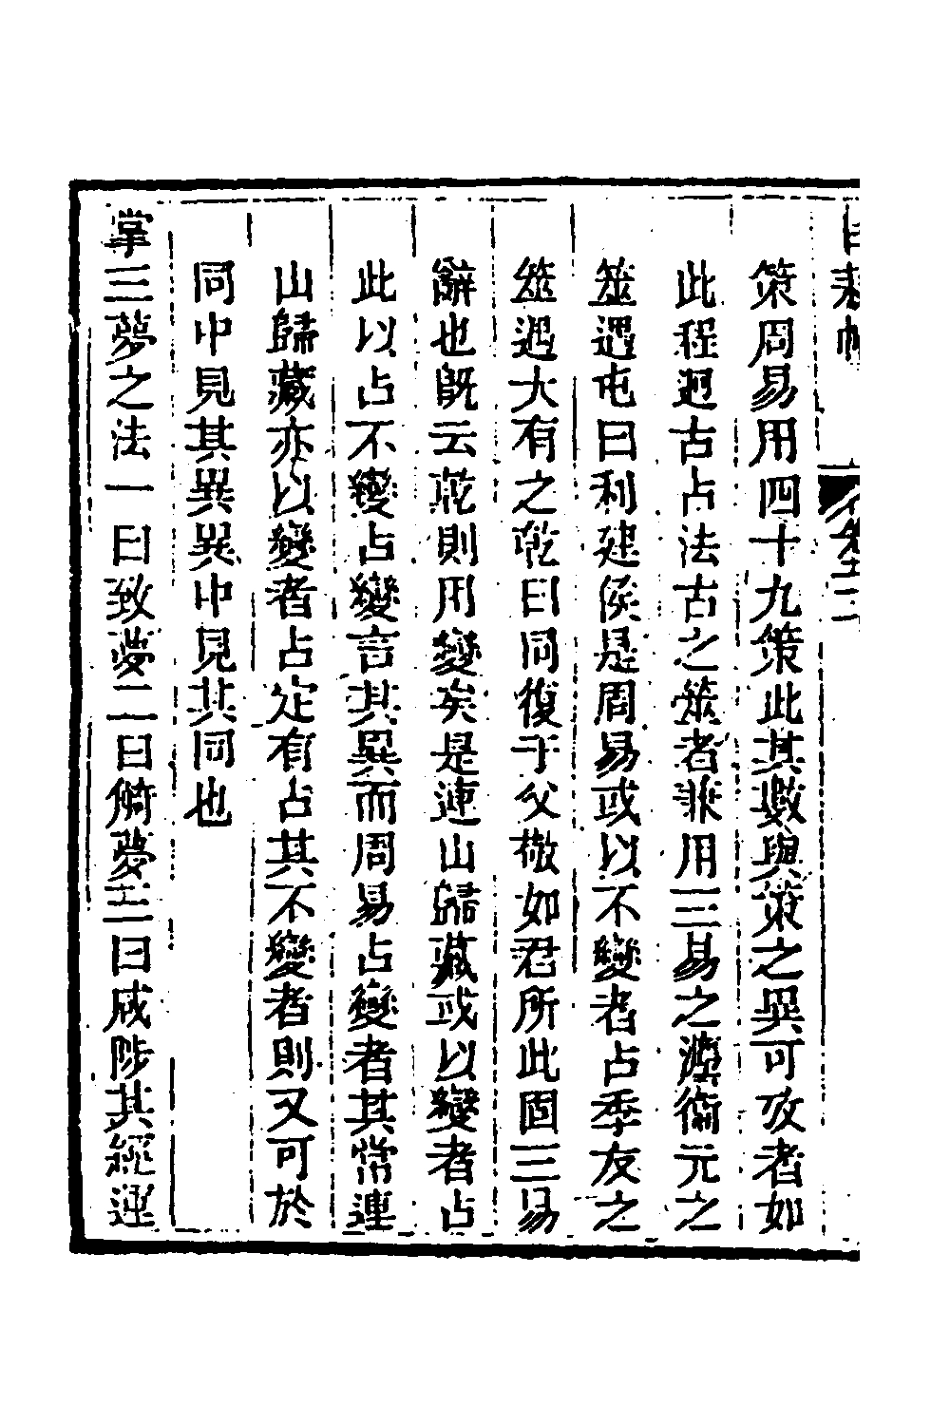 策周易用四十九策此其數與策之異可攷者如
此程迥古占法古之筮者兼用三易之灋衞元之
筮遇屯曰利建侯是周易或以不變者占季友之
筮遇大有之乾曰同復于父敬如君所此固三易
辭也既云乾則用變矣是連山歸藏或以變者占
此以占不變占變言其異而周易占變者其常連
山歸藏亦以變者占定有占其不變者則又可於
同中見其異異中見其同也
掌三夢之法一曰致夢二曰觭夢三曰咸陟其經運